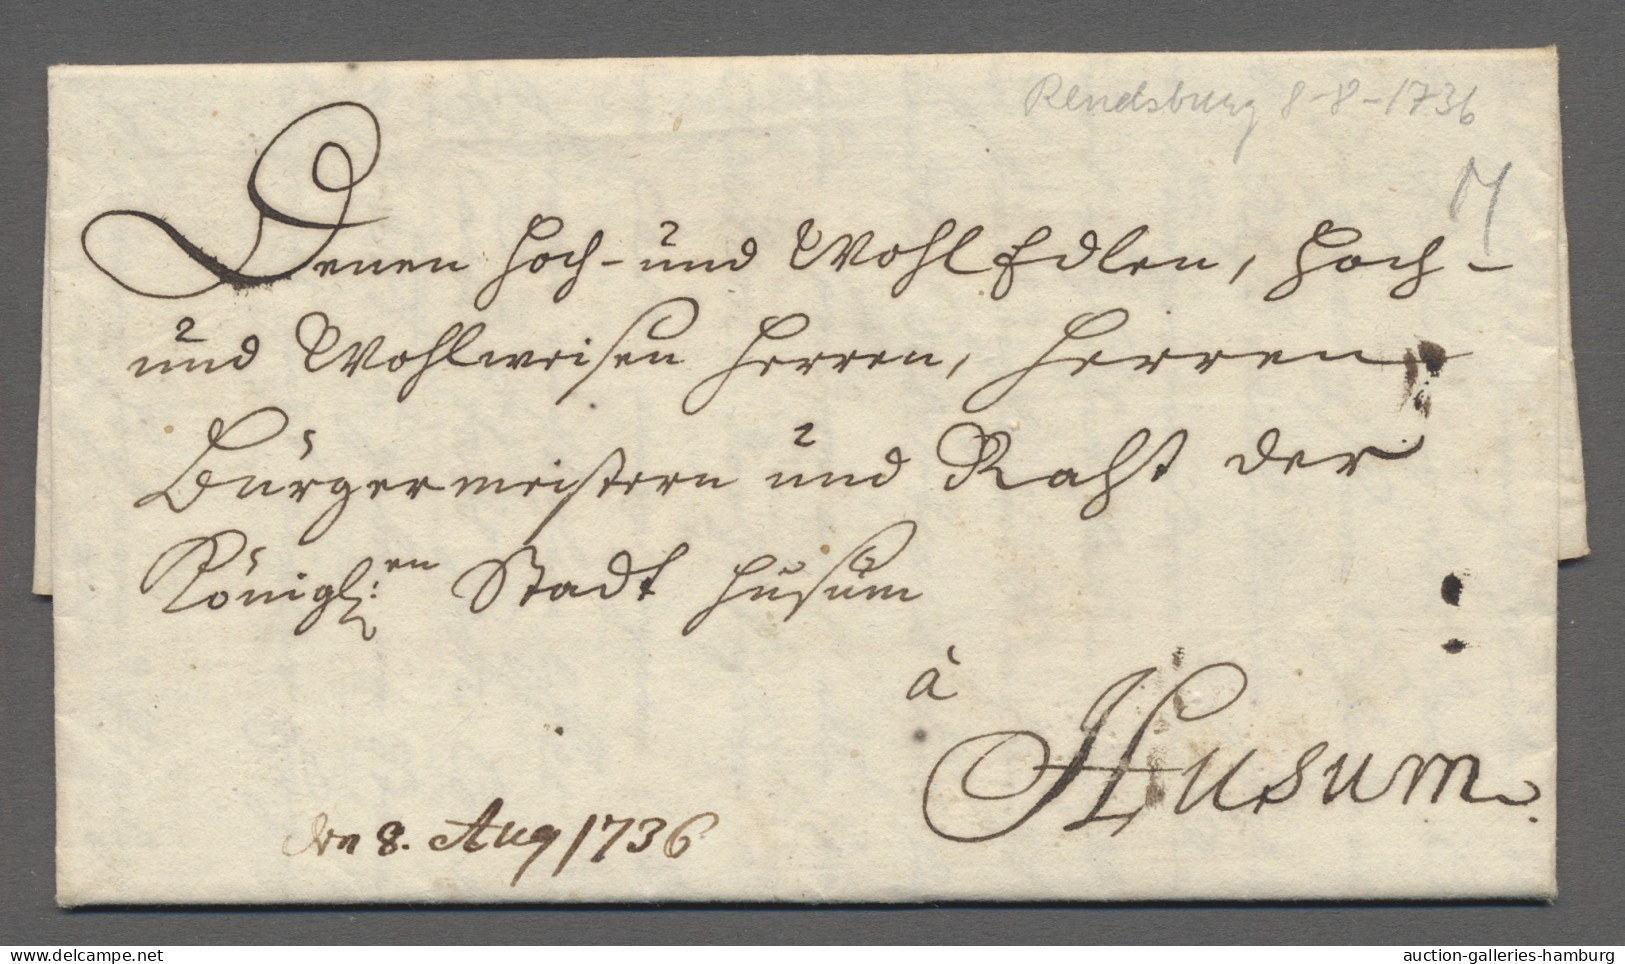 Rendsburg 8-8-1736
Denen Hoch- und WohlEdlen, Hoch-
und Wohlweisen Herren, Herren
Bürgermeistern und Raht der
Königl:en Stadt Husum
à
Husum.
den 8. Aug 1736
delcampe.net
auction-galleries-hamburg